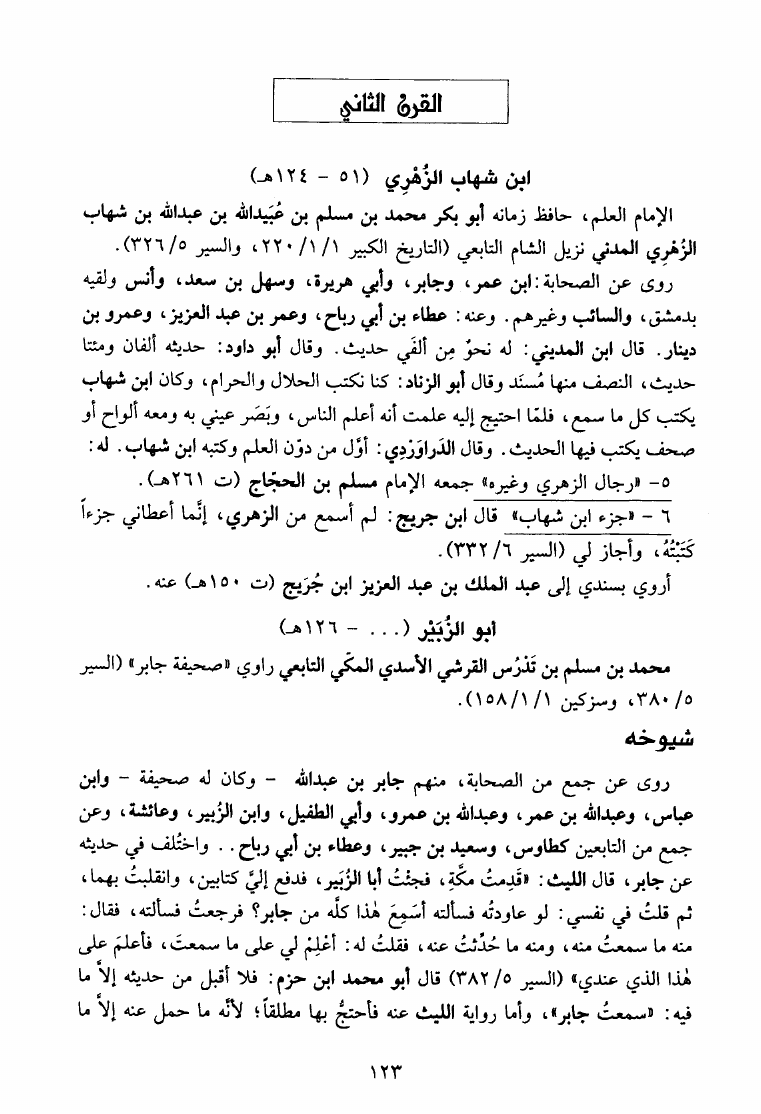 القرن الثاني
ابن شهاب الزُهْرِي (٥١ - ١٢٤هـ)
الإمام العلم، حافظ زمانه أبو بكر محمد بن مسلم بن عُبَيدالله بن عبدالله بن شهاب
الزُهرِي المدني نزيل الشام التابعي (التاريخ الكبير ٢٢٠/١/١، والسير ٣٢٦/٥).
روى عن الصحابة: ابن عمر، وجابر، وأبي هريرة، وسهل بن سعد، وأنس ولقيه
بدمشق، والسائب وغيرهم. وعنه: عطاء بن أبي رباح، وعمر بن عبد العزيز، وعمرو بن
دينار. قال ابن المديني: له نحوٌ مِن ألفَي حديث. وقال أبو داود: حديثه ألفان ومئتا
حديث، النصف منها مُسنَد وقال أبو الزناد: كنا نكتب الحلال والحرام، وكان ابن شهاب
يكتب كل ما سمع، فلمّا احتيج إليه علمت أنه أعلم الناس، وبَصَر عيني به ومعه ألواح أو
صحف يكتب فيها الحديث. وقال الدَراوَرْدِي: أوَّل من دوّن العلم وكتبه ابن شهاب. له:
٥- «رجال الزهري وغيره» جمعه الإمام مسلم بن الحجّاج (ت ٢٦١هـ).
٦ - «جزء ابن شهاب» قال ابن جريج: لم أسمع من الزهري، إنَّما أعطاني جزءاً
كَتَبْتُهُ، وأجاز لي (السير ٣٣٢/٦).
أروي بسندي إلى عبد الملك بن عبد العزيز ابن جُرَيج (ت ١٥٠هـ) عنه.
أبو الزُبَيْر (... - ١٢٦هـ)
محمد بن مسلم بن تَدْرُس القرشي الأسدي المكّي التابعي راوي «صحيفة جابر» (السير
٣٨٠/٥، وسزكين ١٥٨/١/١).
شيوخه
روى عن جمع من الصحابة، منهم جابر بن عبدالله - وكان له صحيفة - وابن
عباس، وعبدالله بن عمر، وعبدالله بن عمرو، وأبي الطفيل، وابن الزُبير، وعائشة، وعن
جمع من التابعين كطاوس، وسعيد بن جبير، وعطاء بن أبي رباح.. واختُلف في حديثه
عن جابر، قال الليث: «قَدِمتُ مكَّة، فجئتُ أبا الزُبَير، فدفع إليَّ كتابين، وانقلبتُ بهما،
ثم قلتُ في نفسي: لو عاودتُه فسألته أسَمِعَ هٰذا كلَّه من جابر؟ فرجعتُ فسألته، فقال:
منه ما سمعتُ منه، ومنه ما حُدِّثتُ عنه، فقلتُ له: أعْلِمْ لي على ما سمعتَ، فأعلمَ على
هٰذا الذي عندي» (السير ٣٨٢/٥) قال أبو محمد ابن حزم: فلا أقبل من حديثه إلاَّ ما
فيه: «سمعتُ جابر»، وأما رواية الليث عنه فأحتجُّ بها مطلقاً؛ لأنَّه ما حمل عنه إلاَّ ما
١٢٣